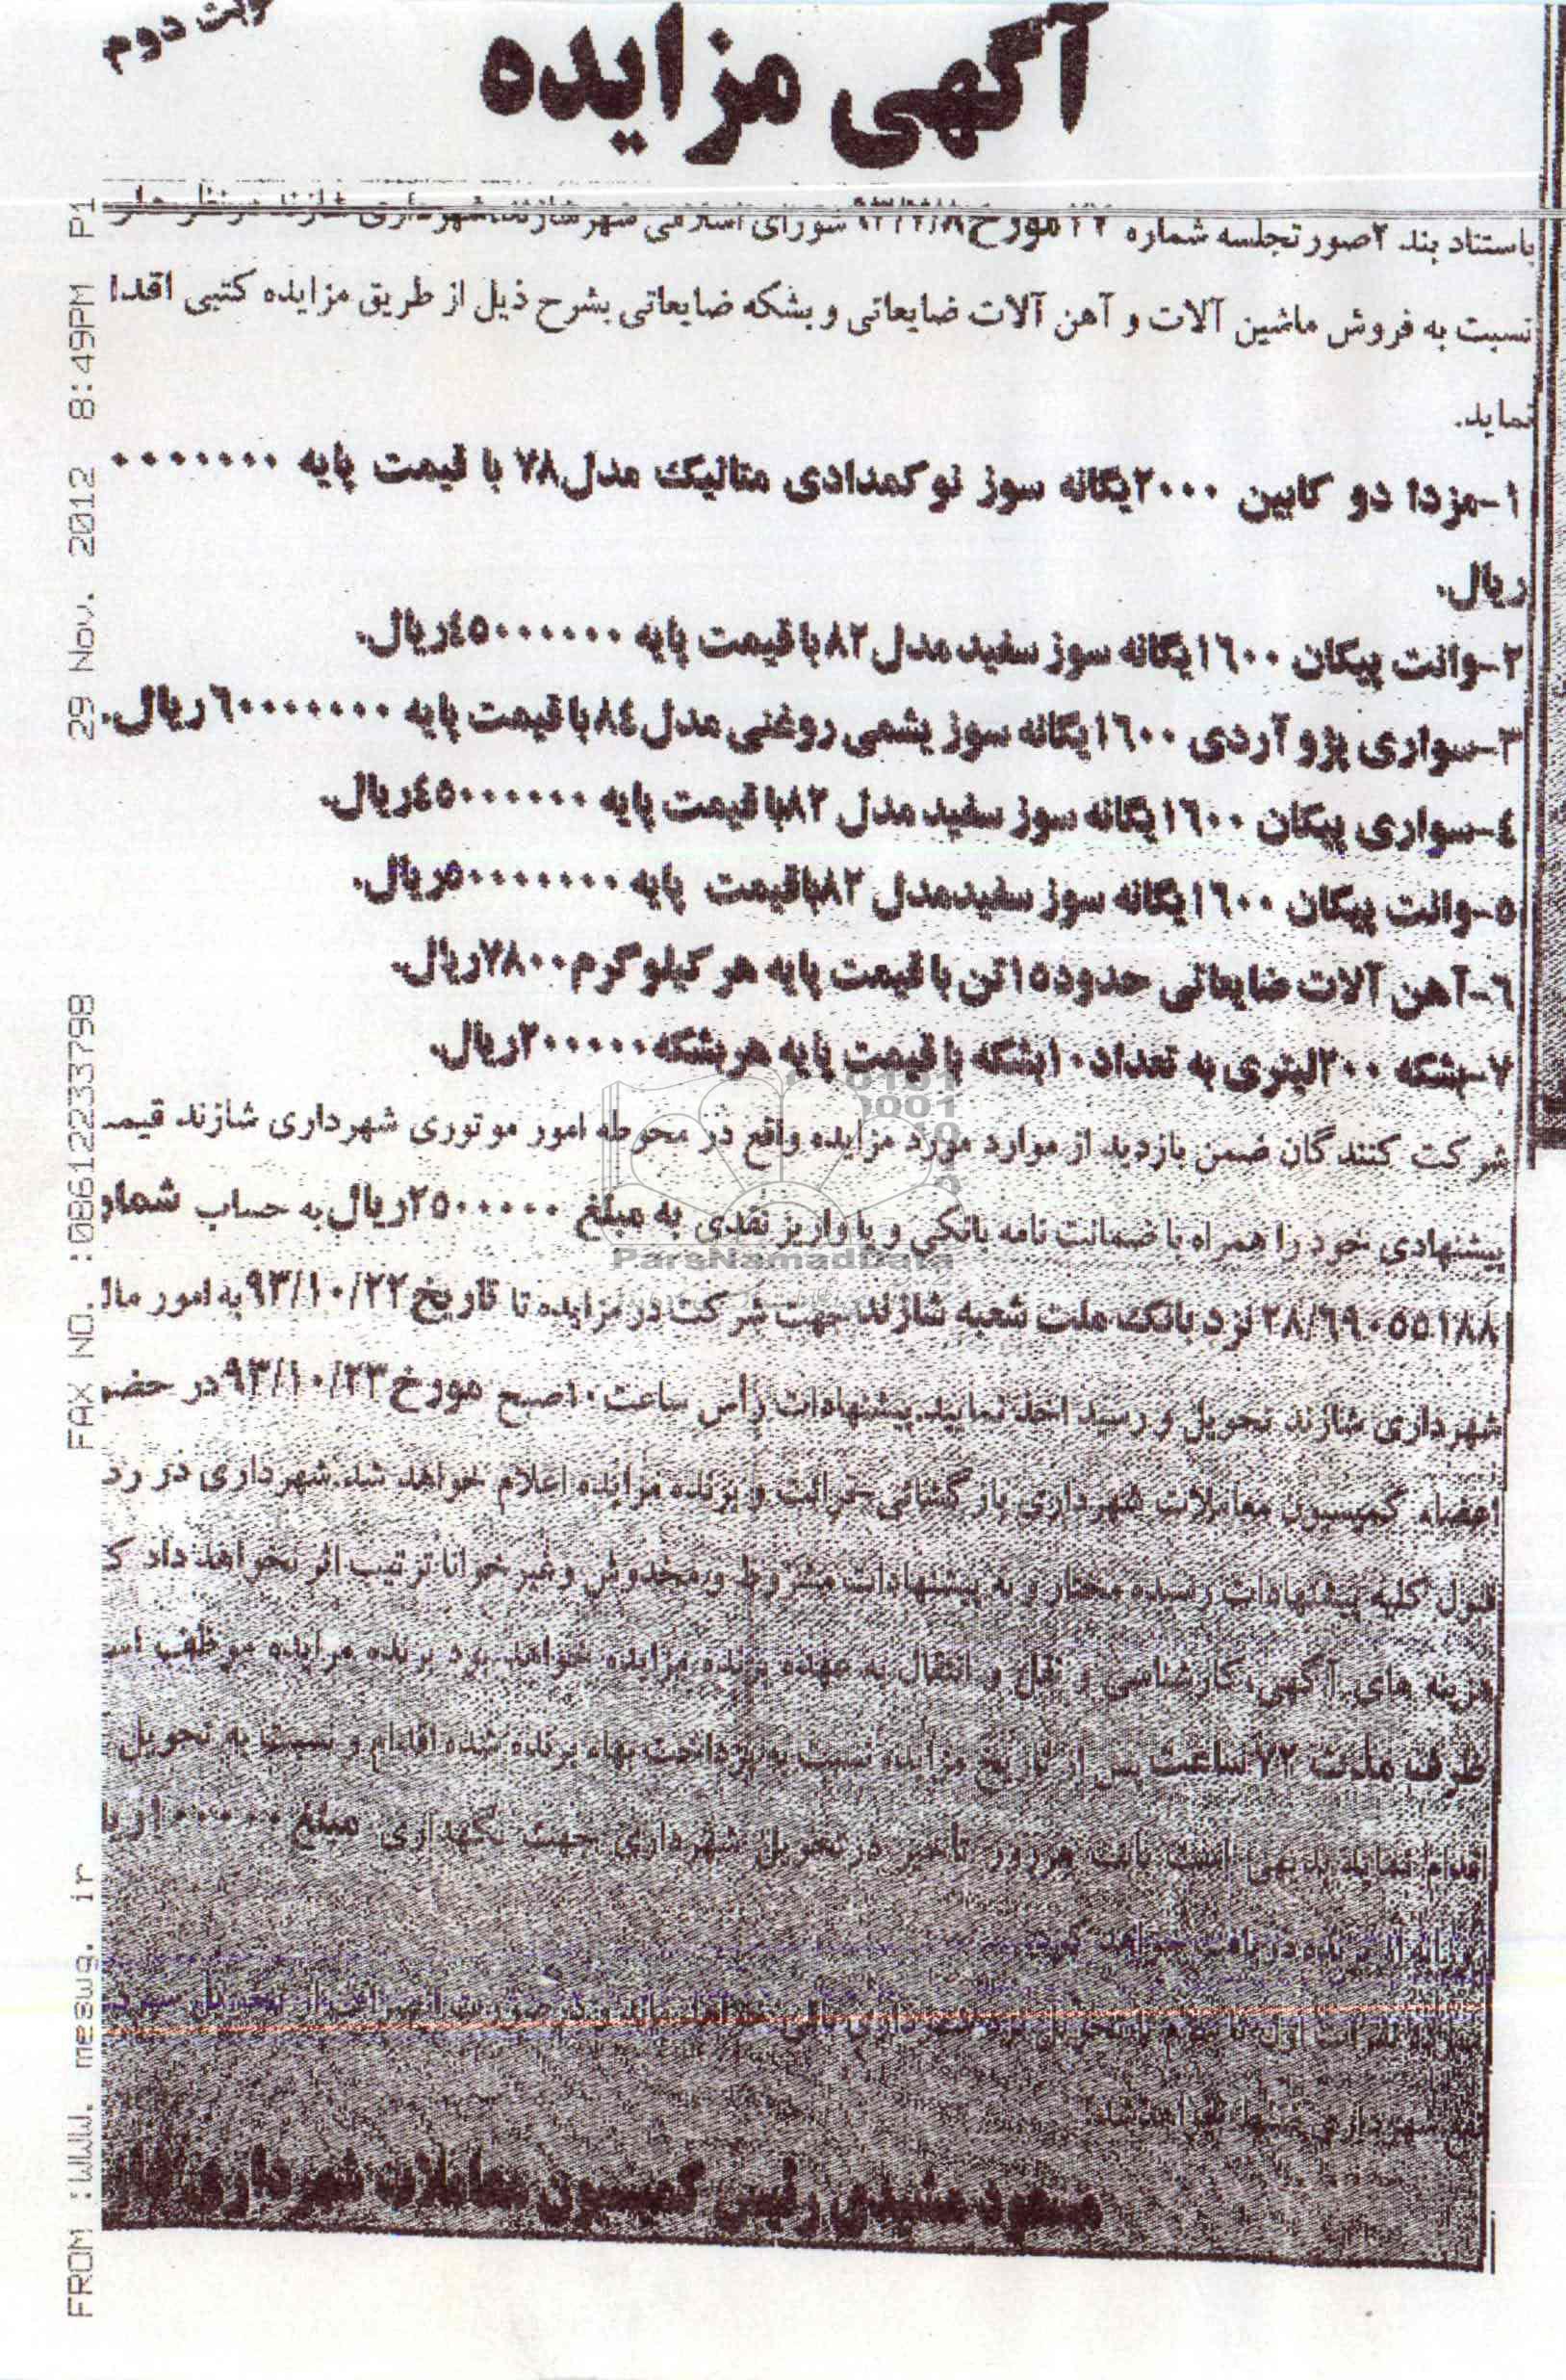 نوبت دوم
آگهی مزایده
باستناد بند ۲صورتجلسه شماره مورخ شورای اسلامی شهر شازند شهرداری شازند در نظر دارد
نسبت به فروش ماشین آلات و آهن آلات ضایعاتی و بشکه ضایعاتی بشرح ذیل از طریق مزایده کتبی اقدا
نماید.
۱-مزدا دو کابین ۲۰۰۰یگانه سوز نوکمدادی متالیک مدل۷۸ با قیمت پایه ۰۰۰۰۰۰۰
ریال.
۲-وانت پیکان ۱۶۰۰یگانه سوز سفید مدل ۸۲با قیمت پایه ۴۵۰۰۰۰۰۰ریال.
۳-سواری پژو آردی ۱۶۰۰یگانه سوز یشمی روغنی مدل۸۴با قیمت پایه ۶۰۰۰۰۰۰۰ریال.
۴-سواری پیکان ۱۶۰۰یگانه سوز سفید مدل ۸۲با قیمت پایه ۴۵۰۰۰۰۰۰ریال.
۵-وانت پیکان ۱۶۰۰یگانه سوز سفیدمدل ۸۲باقیمت پایه ۵۰۰۰۰۰۰۰ریال.
۶-آهن آلات ضایعاتی حدود۱۵تن با قیمت پایه هر کیلوگرم۷۸۰۰ریال.
۷-بشکه ۲۰۰لیتری به تعداد۱۰بشکه با قیمت پایه هربشکه۲۰۰۰۰۰ریال.
شرکت کنندگان ضمن بازدید از موارد مورد مزایده واقع در محوطه امور موتوری شهرداری شازند قیمـ
پیشنهادی خود را همراه با ضمانت نامه بانکی و یا واریز نقدی به مبلغ ۲۵۰۰۰۰۰ریال به حساب شمار
۲۸/۶۹۰۵۵۱۸۸ نزد بانک ملت شعبه شازند جهت شرکت در مزایده تا تاریخ ۹۳/۱۰/۲۲به امور مال
شهرداری شازند تحویل و رسید اخذ نمایید.پیشنهادات رأس ساعت ۱۰صبح مورخ ۹۳/۱۰/۲۳در حضو
اعضاء کمیسیون معاملات شهرداری بازگشائی-قرائت و برنده مزایده اعلام خواهد شد.شهرداری در رد
قبول کلیه پیشنهادات رسیده مختار و به پیشنهادات مشروط و مخدوش و غیر خوانا ترتیب اثر نخواهد داد ک
هزینه های آگهی،کارشناسی و نقل و انتقال به عهده برنده مزایده خواهد بود برنده مزایده موظف اسـ
ظرف مدت ۷۲ساعت پس از تاریخ مزایده نسبت به پرداخت بهاء برنده شده اقدام و نسبت به تحویل
اقدام نماید بدیهی است بابت هرروز تأخیر در تحویل شهرداری جهت نگهداری مبلغ ریا
روزانه از برنده دریافت خواهد نمود.
رئیس کمیسیون معاملات شهرداری
29 Nov. 2012 8:49PM P1
FAX NO. :08612233798
FROM :WWW. meawg. ir
ParsNamadData